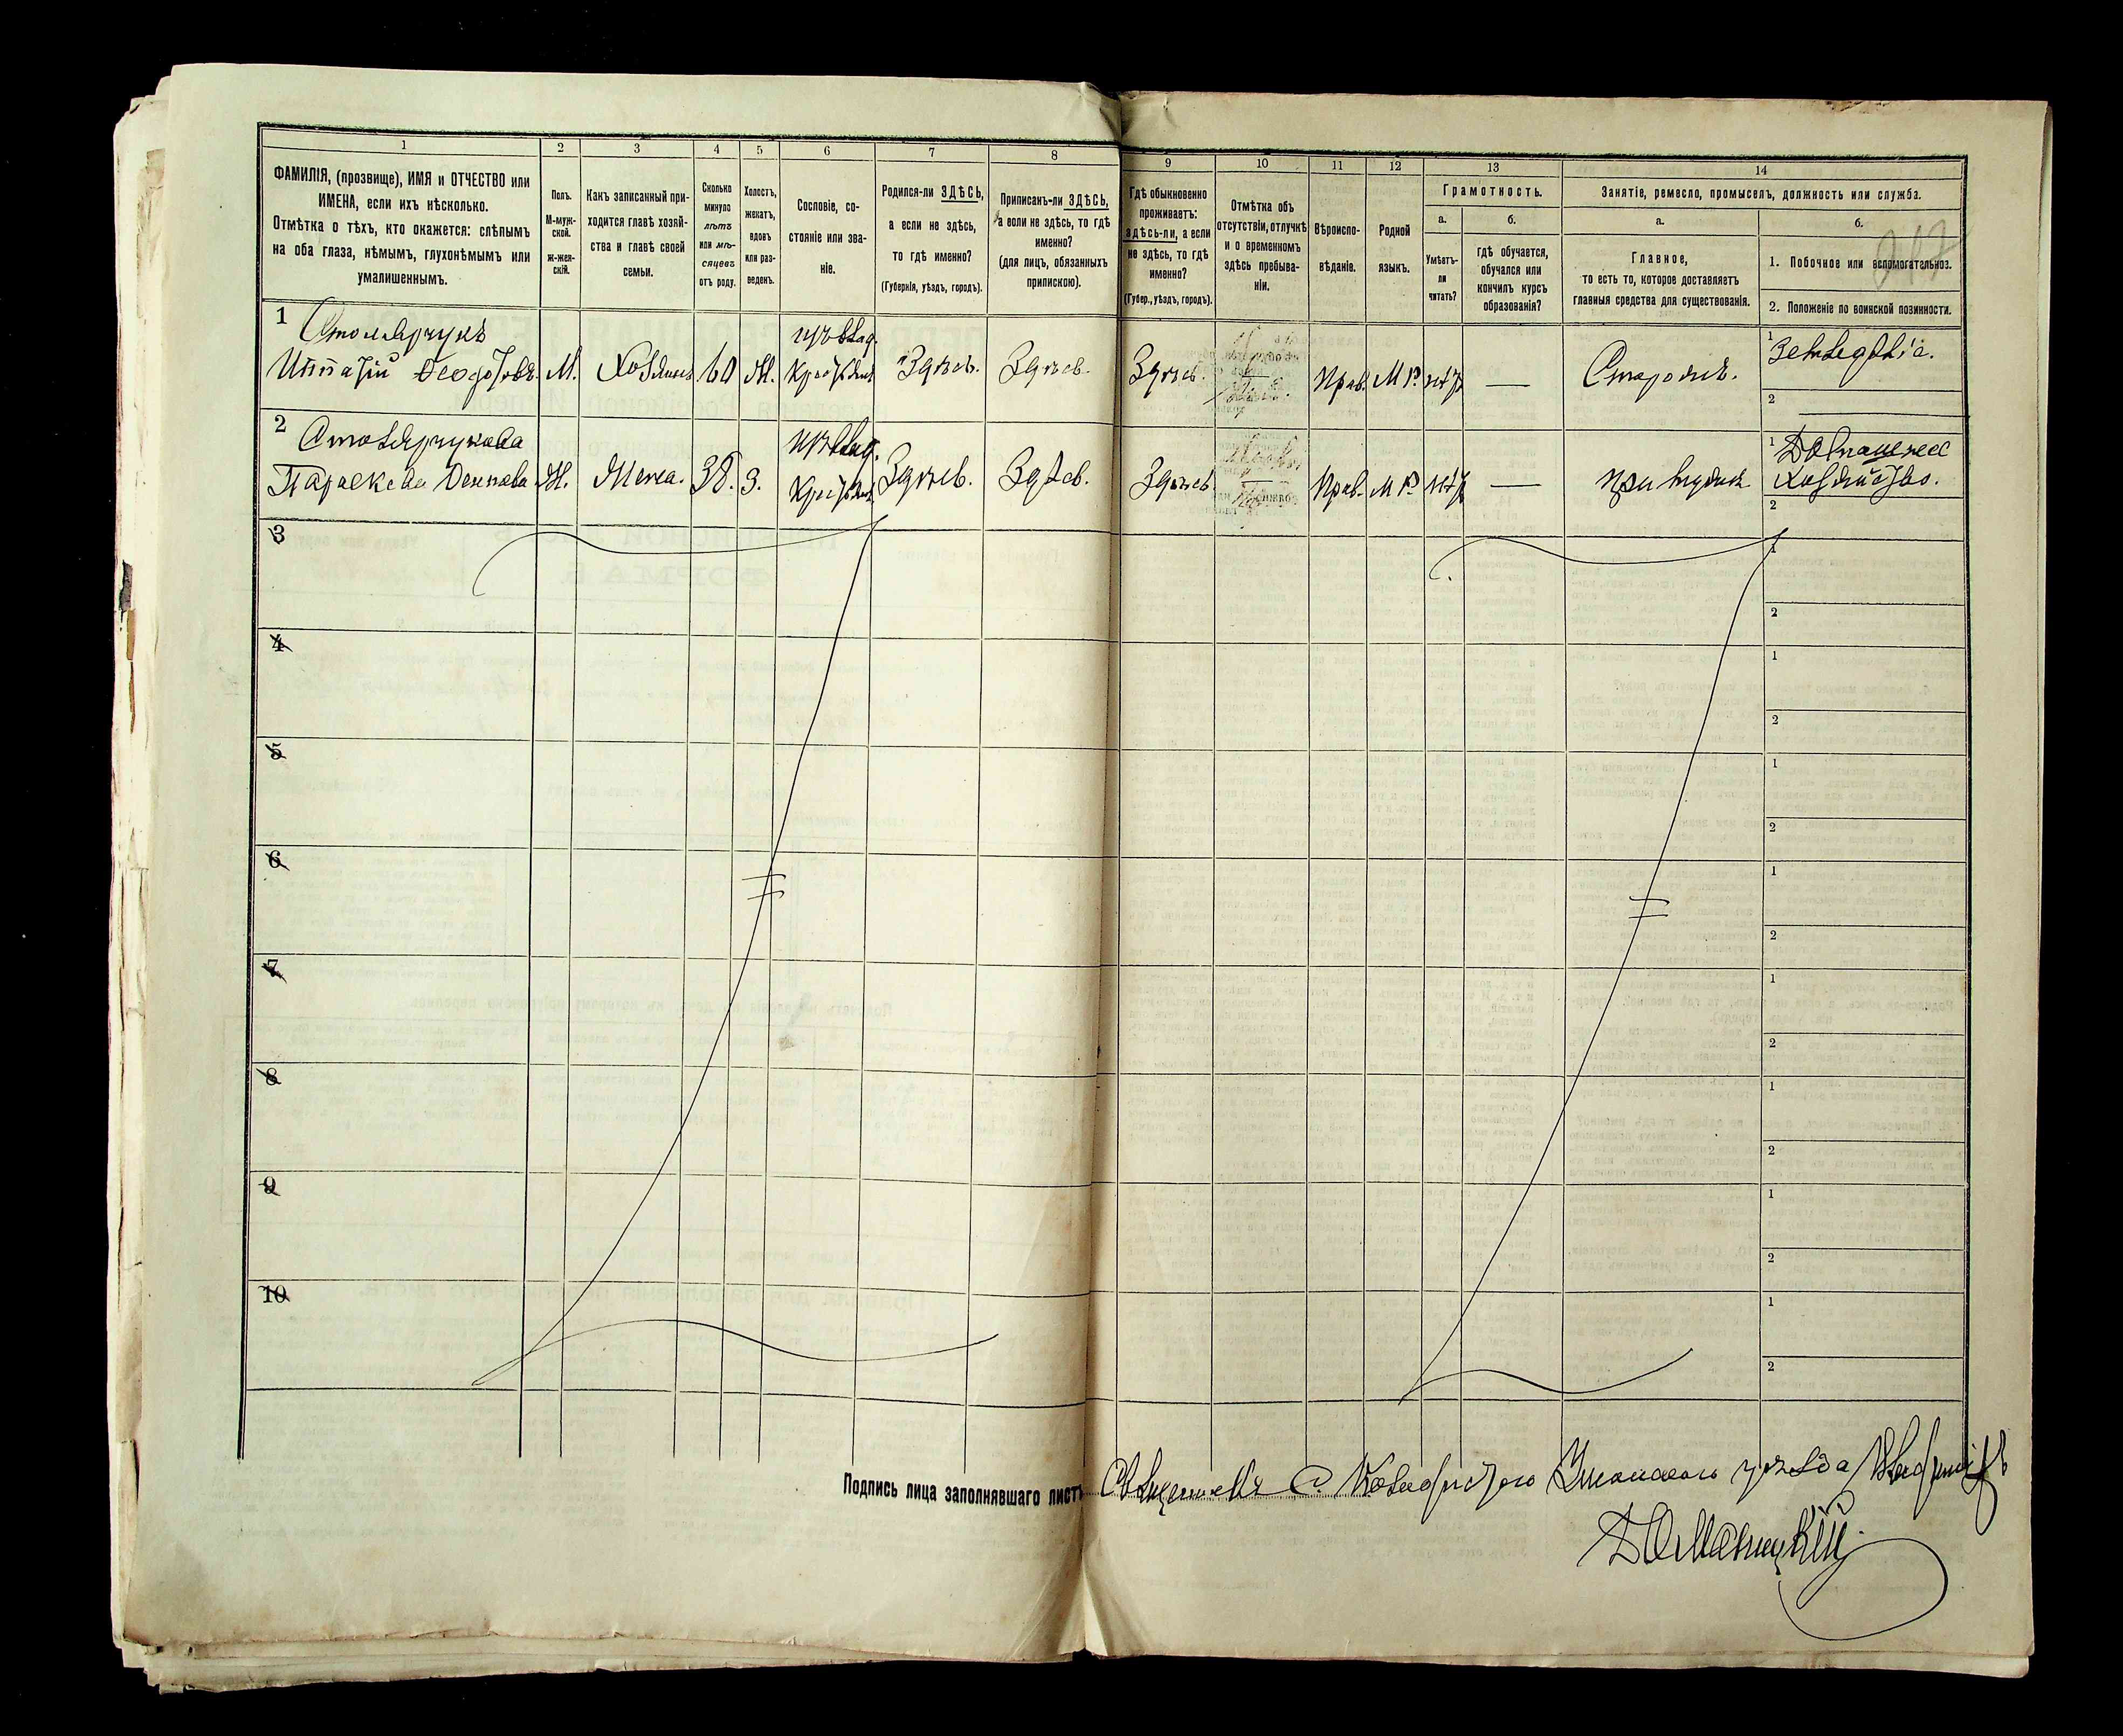 1
2
3
4
5
6
7
8
ФАМИЛІЯ, (прозвище), ИМЯ и ОТЧЕСТВО или
ИМЕНА, если ихъ нѣсколько.
Отмѣтка о тѣхъ, кто окажется: слѣпымъ
на оба глаза, нѣмымъ, глухонѣмымъ или
умалишеннымъ.
Полъ.
М-муж-
ской.
ж-жен-
скій.
Какъ записанный при-
ходится главѣ хозяй-
ства и главѣ своей
семьи.
Сколько
минуло
лѣтъ
или мѣ-
сяцевъ
отъ роду.
Холостъ,
женатъ,
вдовъ
или раз-
веденъ.
Сословіе, со-
стояніе или зва-
ніе.
Родился-ли ЗДѢСЬ,
а если не здѣсь,
то гдѣ именно?
(Губернія, уѣздъ, городъ).
Приписанъ-ли ЗДѢСЬ,
а если не здѣсь, то гдѣ
именно?
(для лицъ, обязанныхъ
припискою).
9
10
11
12
13
14
Гдѣ обыкновенно
проживаетъ:
здѣсь-ли, а если
не здѣсь, то гдѣ
именно?
(Губер., уѣздъ, городъ).
Отмѣтка объ
отсутствіи, отлучкѣ
и о временномъ
здѣсь пребыва-
ніи.
Вѣроиспо-
вѣданіе.
Родной
языкъ.
Грамотность.
а.
б.
Умѣетъ-
ли
читать?
Гдѣ обучается,
обучался или
кончилъ курсъ
образованія?
Занятіе, ремесло, промыселъ, должность или служба.
а.
б.
Главное,
то есть то, которое доставляетъ
главныя средства для существованія.
1. Побочное или вспомогательное.
2. Положеніе по воинской повинности.
1
Столярчукъ
Игнатій Ѳеодотовъ. М. Хозяинъ 60 Ж. Крестьян. Здѣсь. Здѣсь. Здѣсь. Прав. М Р. нѣт — Сторожъ.
1 Земледѣліе.
2
2
Столярчукова
Параскева М. Жена. 38. З. Крестьян. Здѣсь. Здѣсь. Здѣсь Прав. М Р. нѣт — при мужѣ
1 Домашнее
хозяйство.
2
3
1
2
4
1
2
5
1
2
6
1
2
7
1
2
8
1
2
9
1
2
10
1
2
Подпись лица заполнявшаго листъ Священникъ С. Уманскаго уѣзда
Доманицкій